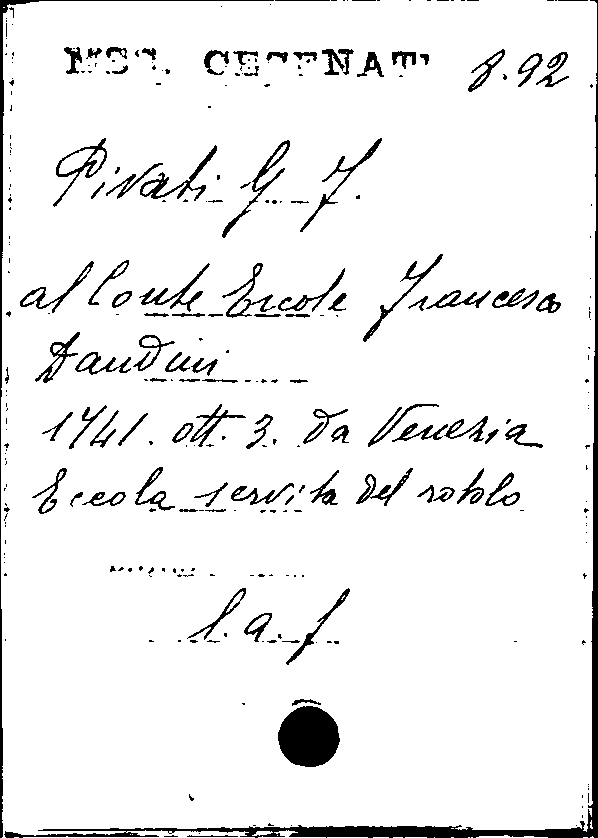 MSS. CESENATI 8.92
Pivati G. F.
al Conte Ercole Francesco
Dandini
1741. ott. 3. da Venezia
Eccola servita del rotolo
l. a. f